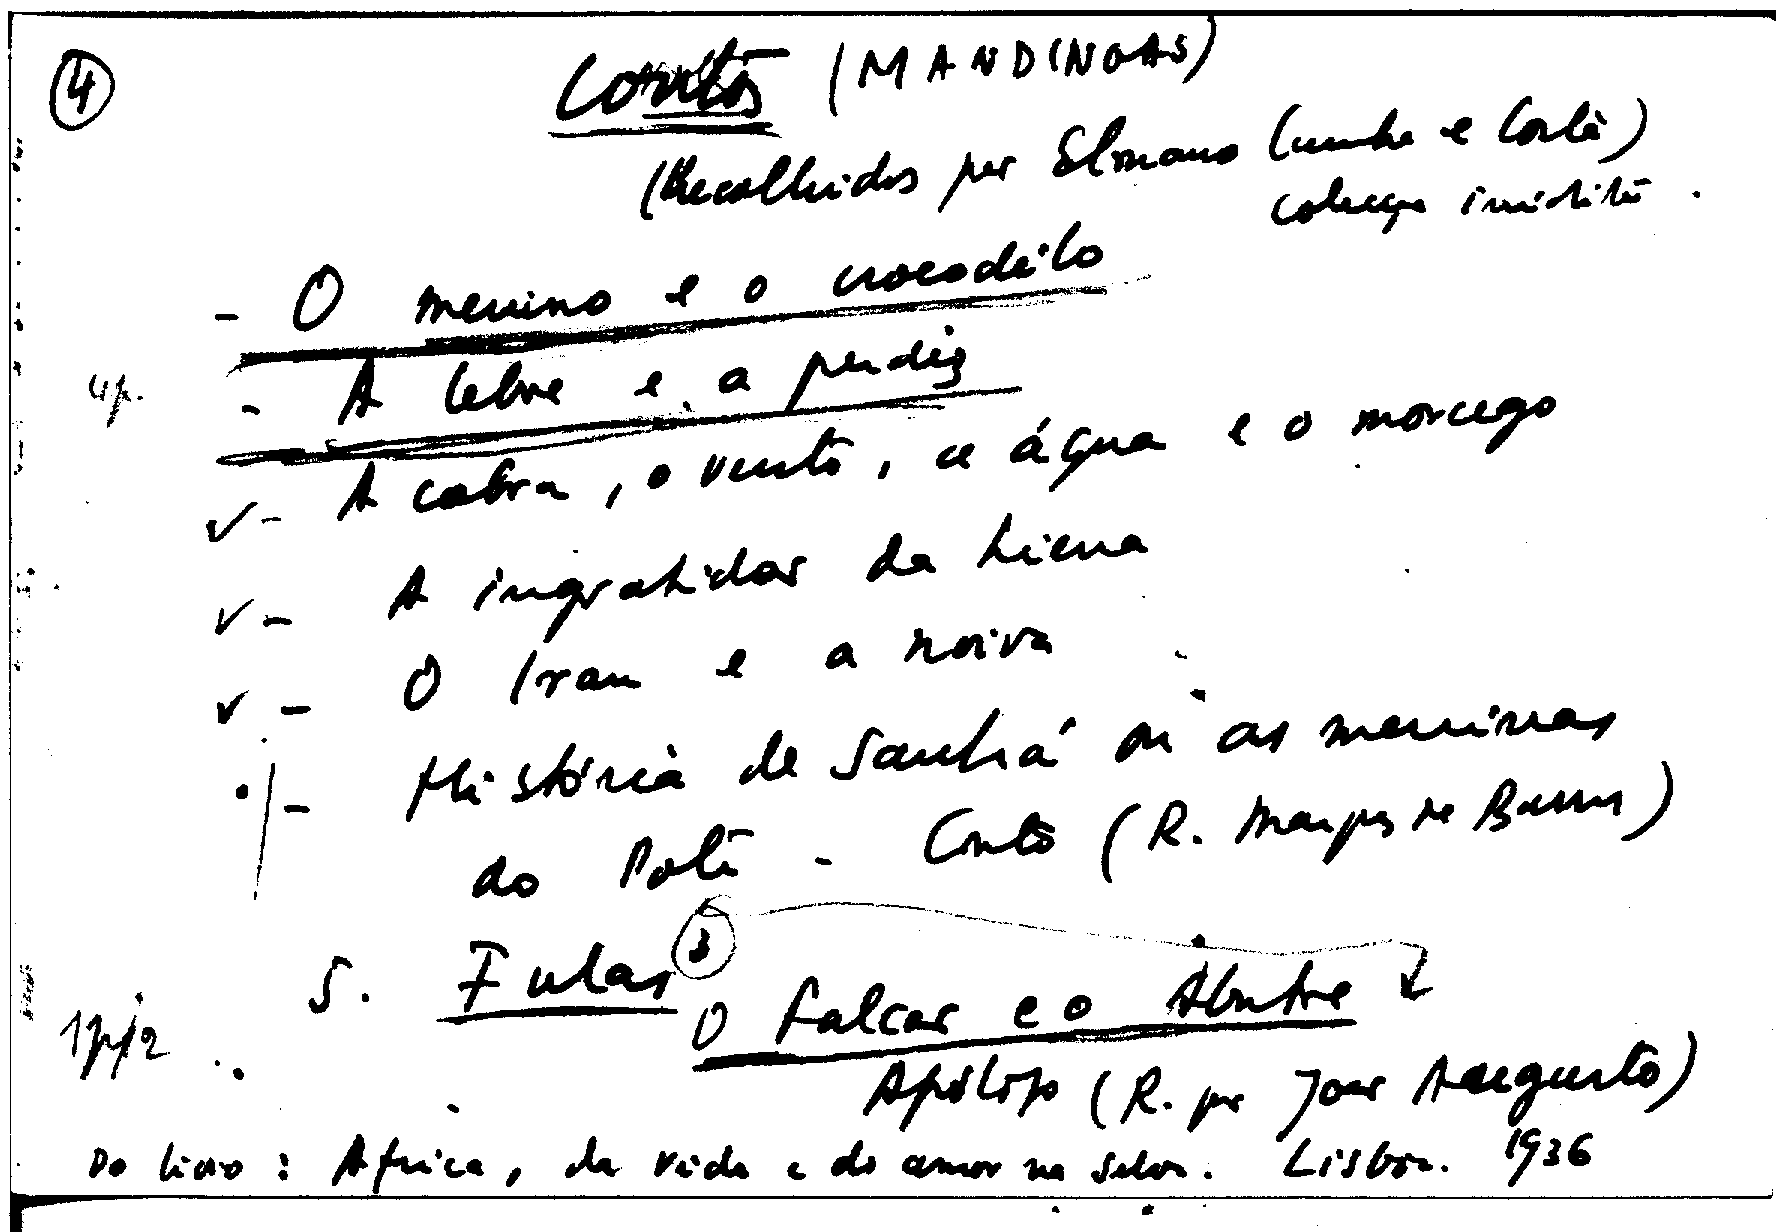 4
Contos (MANDINGAS)
(Recolhidos por Elmano Cunha e Costa)
colecção inédita.
- O menino e o crocodilo
4p. - A lebre e a perdiz
✓ - A cabra, o vento, a água e o morcego
✓ - A ingratidão da hiena
✓ - O Iran e a noiva
- História de Sanhá ou as meninas
do Poté - Conto (R. Marques de Barros)
5. Fulas 3
1p/2 O Falcão e o Abutre
Apólogo (R. por João Augusto)
Do livro: Africa, da vida e do amor na selva. Lisboa. 1936